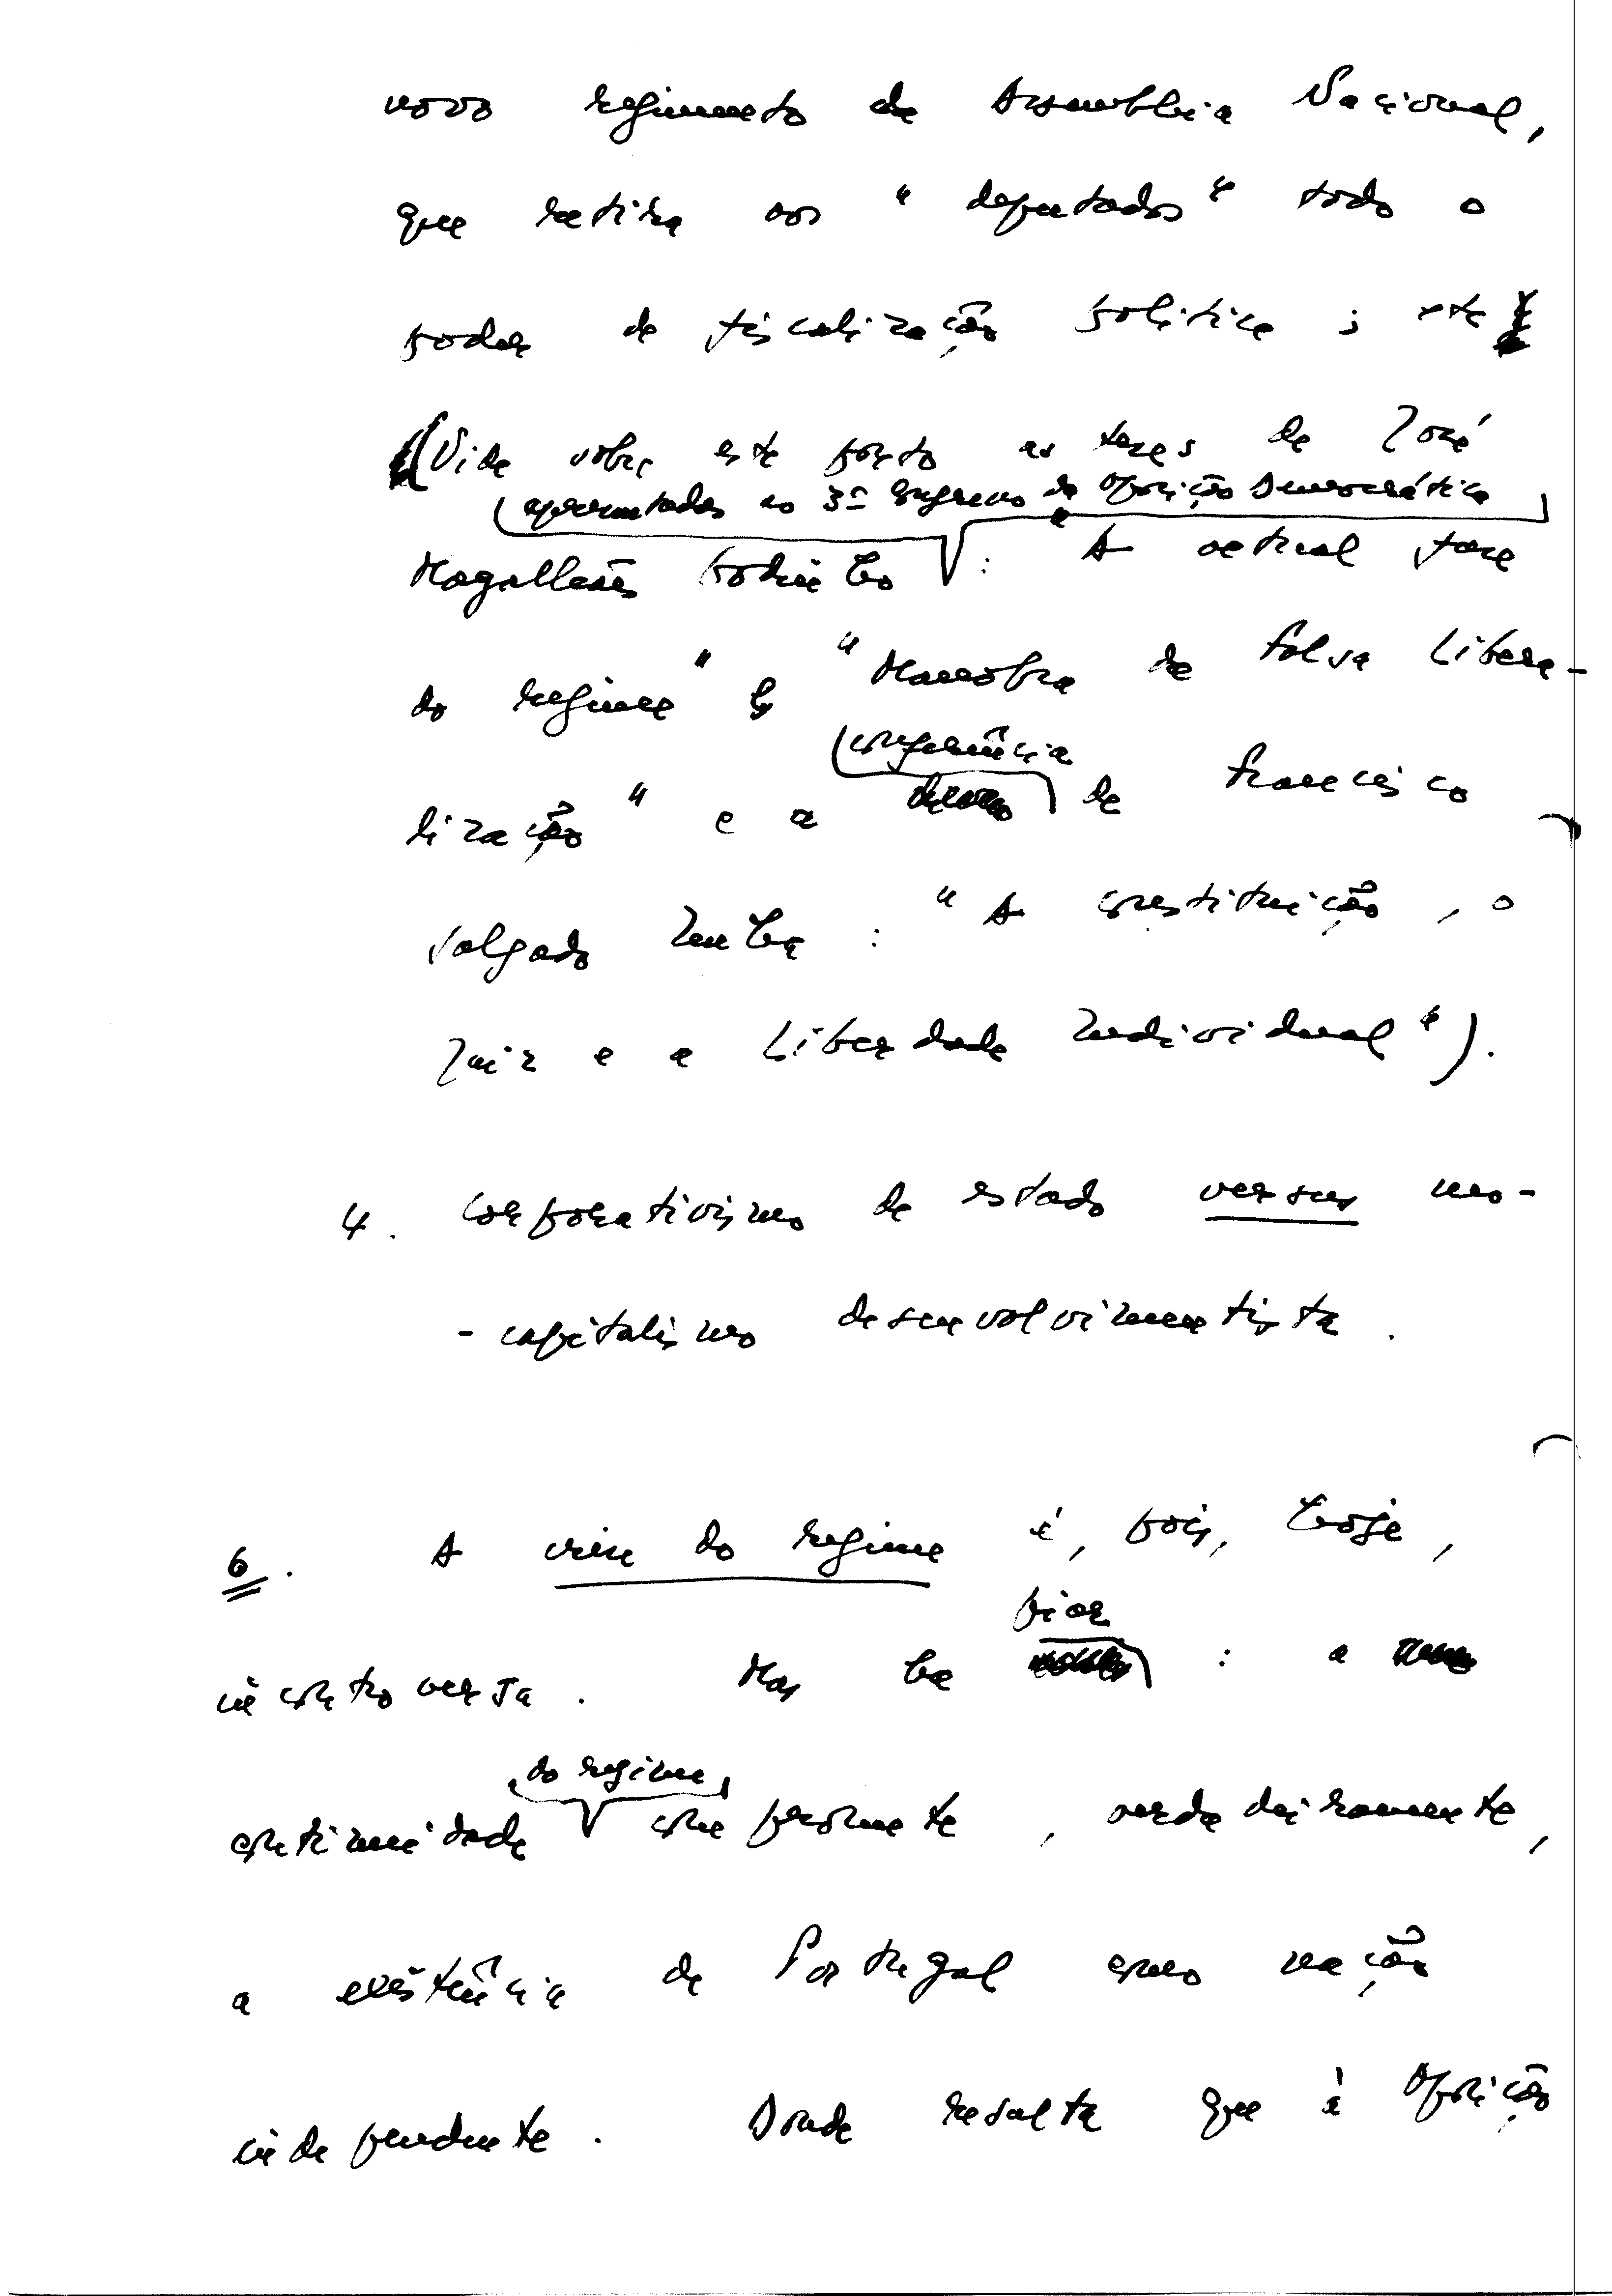 novo regimento da Assembleia Nacional,
que retira aos "deputados" todo o
poder de fiscalização política; etc
(Vide sobre este ponto as teses de José
apresentadas ao 3º Congresso da Oposição Democrática
Magalhães Godinho : "A actual fase
do regime" e "Manobra de falsa libera-
conferência
lização" e a de Francisco
Salgado Zenha : "A Constituição, o
Juiz e a Liberdade Individual").
4. Corporativismo de estado versus neo-
-capitalismo desenvolvimentista.
6. A crise do regime é, pois, hoje,
pior
incontroversa. Mas há : a
do regime
continuidade compromete, verdadeiramente,
a existência de Portugal como nação
independente. Donde resulta que à Oposição